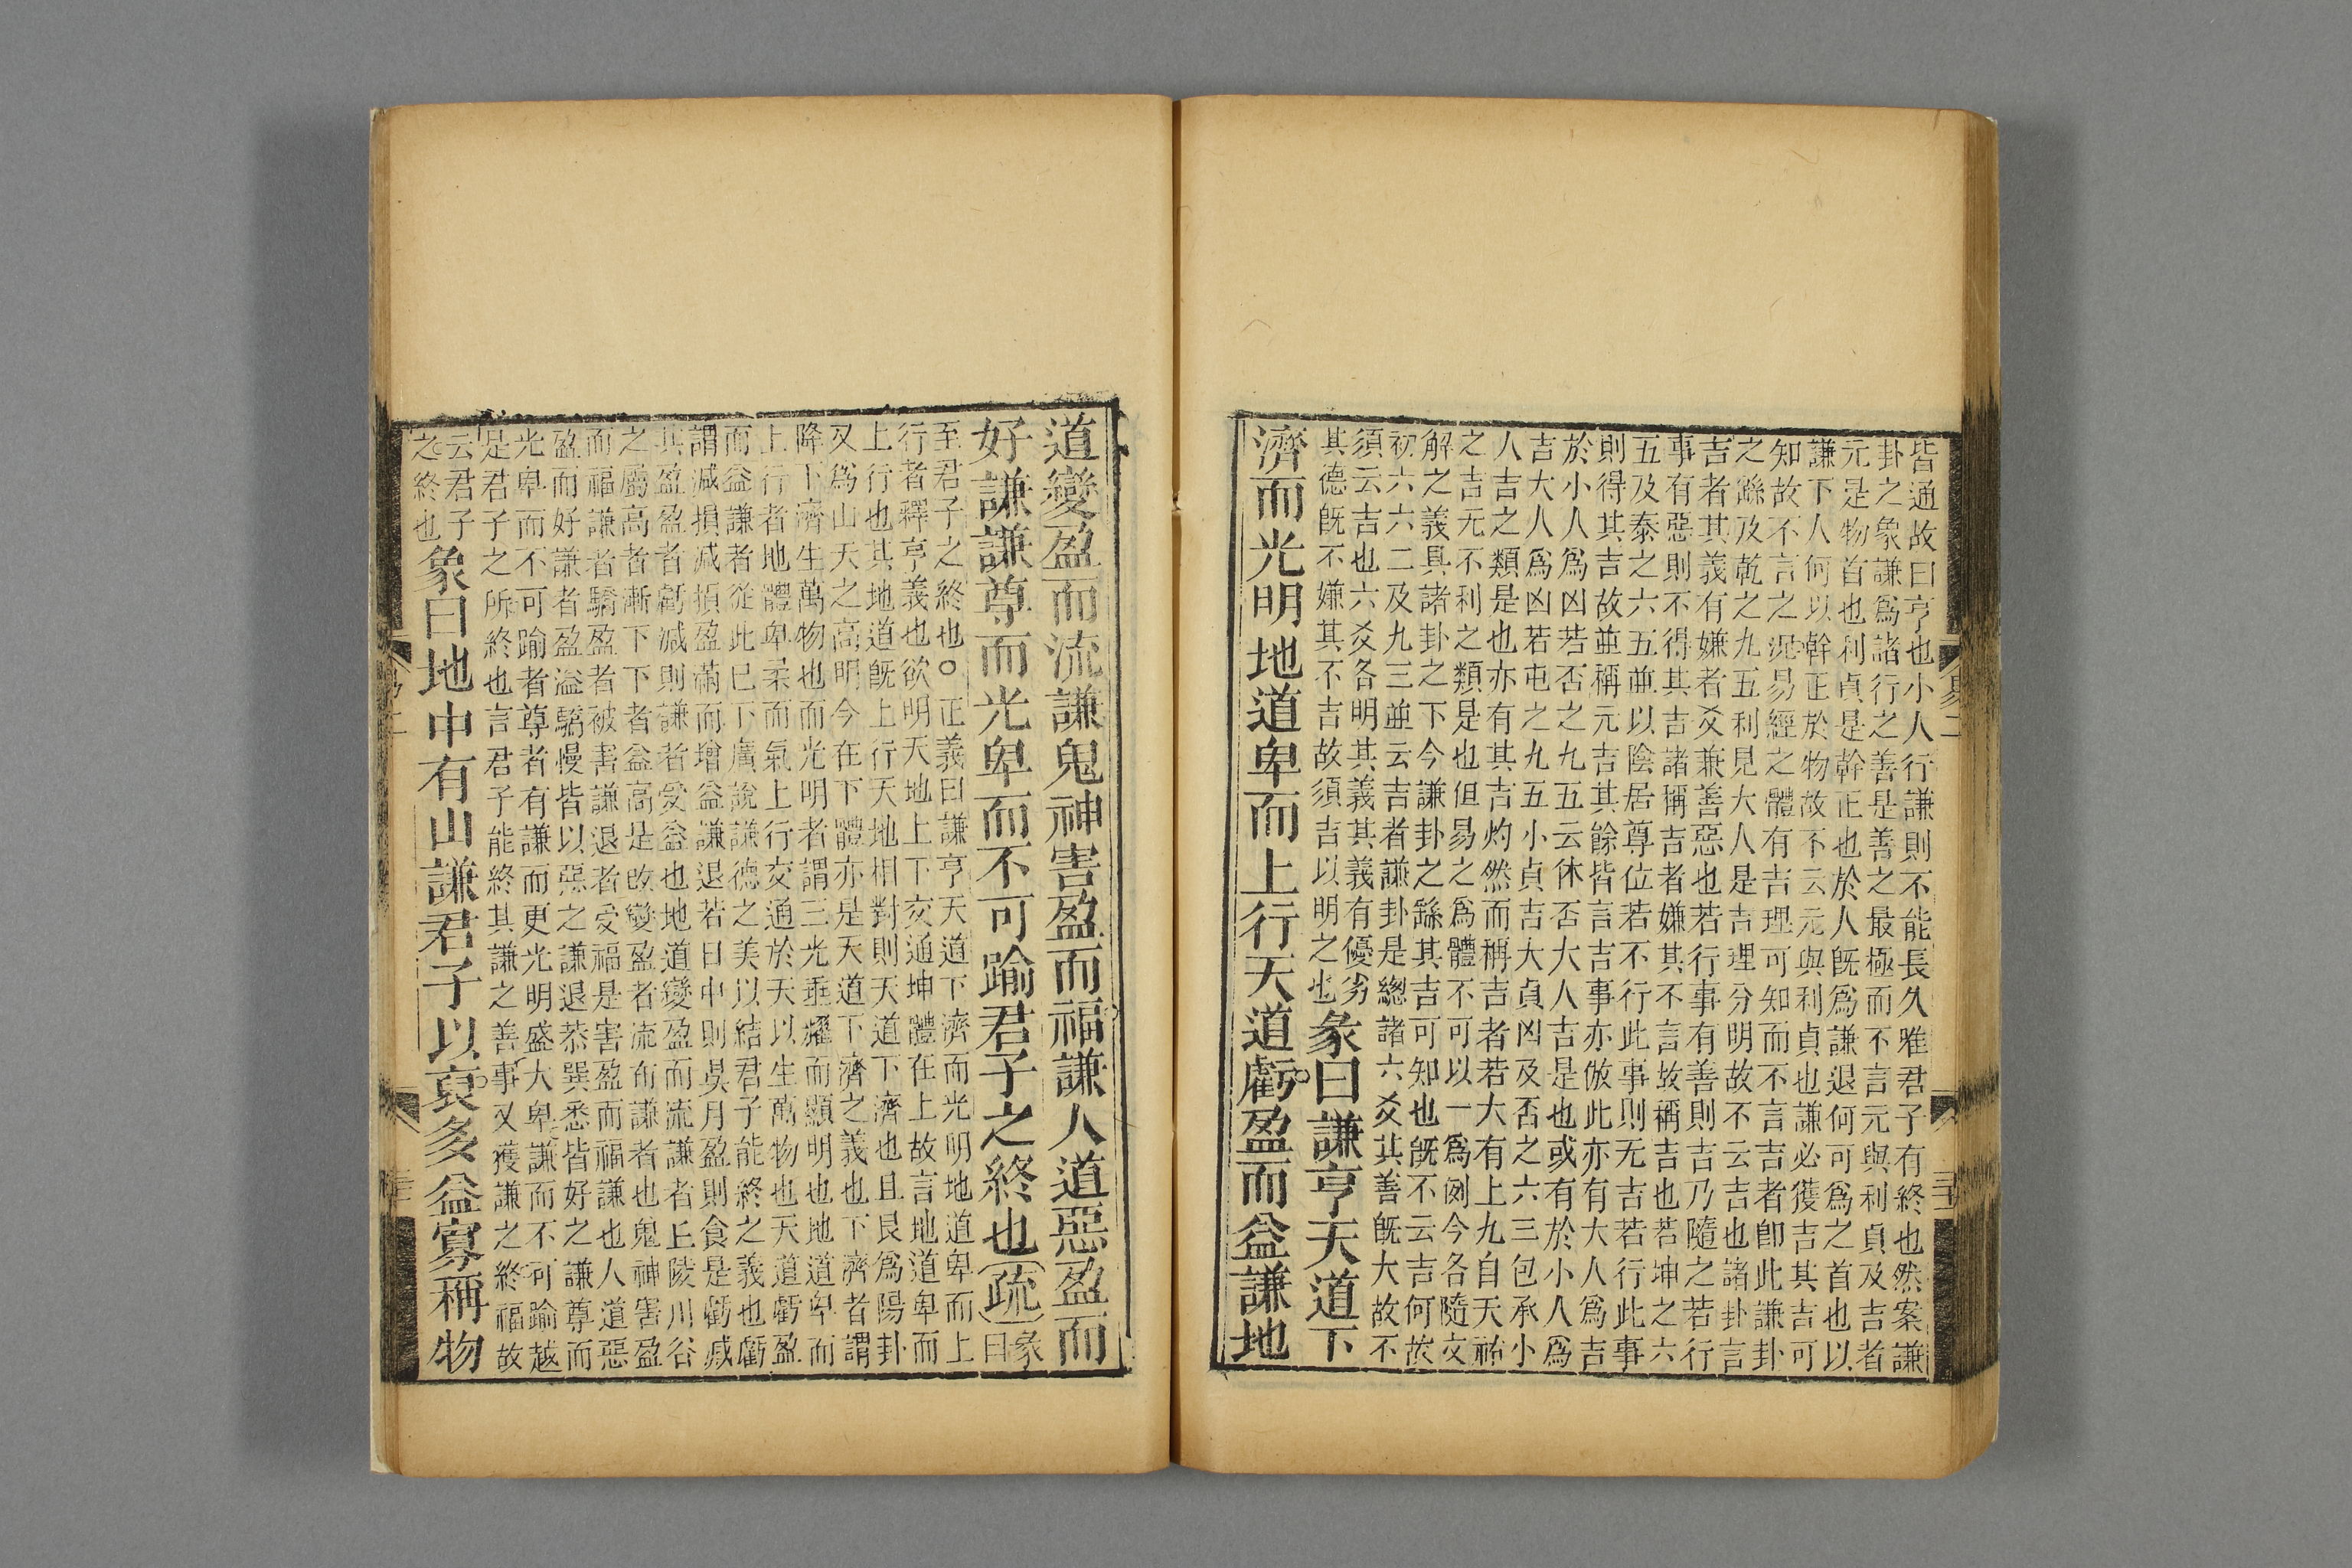 皆通故曰亨也小人行謙則不能長久唯君子有終也然案謙
卦之象謙爲諸行之善是善之最極而不言元與利貞及吉者
元是物首也利貞是幹正也於人旣爲謙退何可爲之首也以
謙下人何以幹正於物故不云元與利貞也謙必獲吉其吉可
知故不言之況易經之體有吉理可知而不言吉者卽此謙卦
之繇及乾之九五利見大人是吉理分明故不云吉也諸卦言
吉者其義有嫌者爻兼善惡也若行事有善則吉乃隨之若行
事有惡則不得其吉諸稱吉者嫌其不言故稱吉也若坤之六
五及泰之六五並以陰居尊位若不行此事則无吉若行此事
則得其吉故並稱元吉其餘皆言吉事亦倣此亦有大人爲吉
於小人爲凶若否之九五云休否大人吉是也或有於小人爲
吉大人爲凶若屯之九五小貞吉大貞凶及否之六三包承小
人吉之類是也亦有其吉灼然而稱吉者若大有上九自天祐
之吉无不利之類是也但易之爲體不可以一爲例今各隨文
解之義具諸卦之下今謙卦之繇其吉可知也旣不云吉何故
初六六二及九三並云吉者謙卦是總諸六爻其善旣大故不
須云吉也六爻各明其義其義有優劣
其德旣不嫌其不吉故須吉以明之也彖曰謙亨天道下
濟而光明地道卑而上行天道虧盈而益謙地
道變盈而流謙鬼神害盈而福謙人道惡盈而
好謙謙尊而光卑而不可踰君子之終也疏彖曰
至君子之終也○正義曰謙亨天道下濟而光明地道卑而上
行者釋亨義也欲明天地上下交通坤體在上故言地道卑而
上行也其地道旣上行天地相對則天道下濟也且艮爲陽卦
又爲山天之高明今在下體亦是天道下濟之義也下濟者謂
降下濟生萬物也而光明者謂三光垂耀而顯明也地道卑而
上行者地體卑柔而氣上行交通於天以生萬物也天道虧盈
而益謙者從此已下廣說謙德之美以結君子能終之義也虧
謂減損減損盈滿而增益謙退若日中則昃月盈則食是虧減
其盈盈者虧減則謙者受益也地道變盈而流謙者丘陵川谷
之屬高者漸下下者益高是改變盈者流布謙者也鬼神害盈
而福謙者驕盈者被害謙退者受福是害盈而福謙也人道惡
盈而好謙者盈溢驕慢皆以惡之謙退恭巽悉皆好之謙尊而
光卑而不可踰者尊者有謙而更光明盛大卑謙而不可踰越
是君子之所終也言君子能終其謙之善事又獲謙之終福故
云君子
之終也象曰地中有山謙君子以裒多益寡稱物